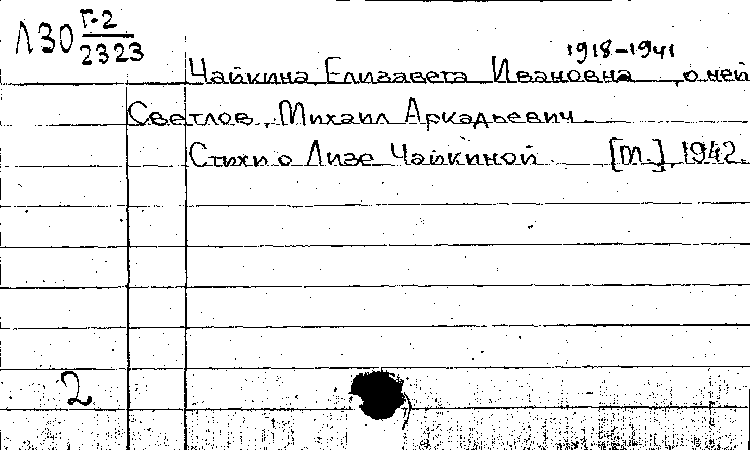 Л30 Г-2
2323
1918-1941
Чайкина Елизавета Ивановна, о ней
Светлов, Михаил Аркадьевич
Стихи о Лизе Чайкиной [М.], 1942.
2